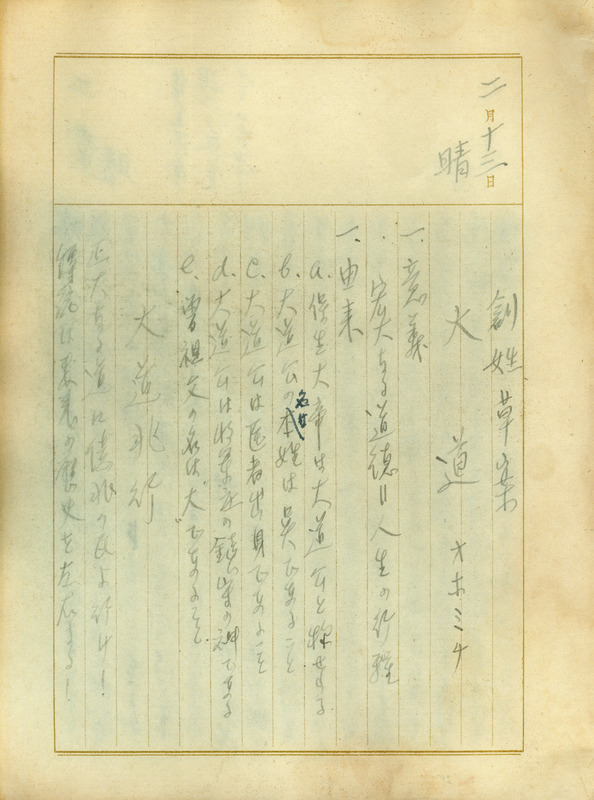 二月十三日
晴
創姓草案
大道 オホミチ
一、意義
宏大なる道徳は人生の行程
一、由来
a. 保生大帝は大道公と称せらる
b. 大道公の本姓は呉であること
名は
c. 大道公は医者出身であること
d. 大道公は將軍庄の鎮守の神である
e. 曽祖父の名は"大"であること
大道兆行
大なる道は億兆の民よ行け！
の歴史を左右する！